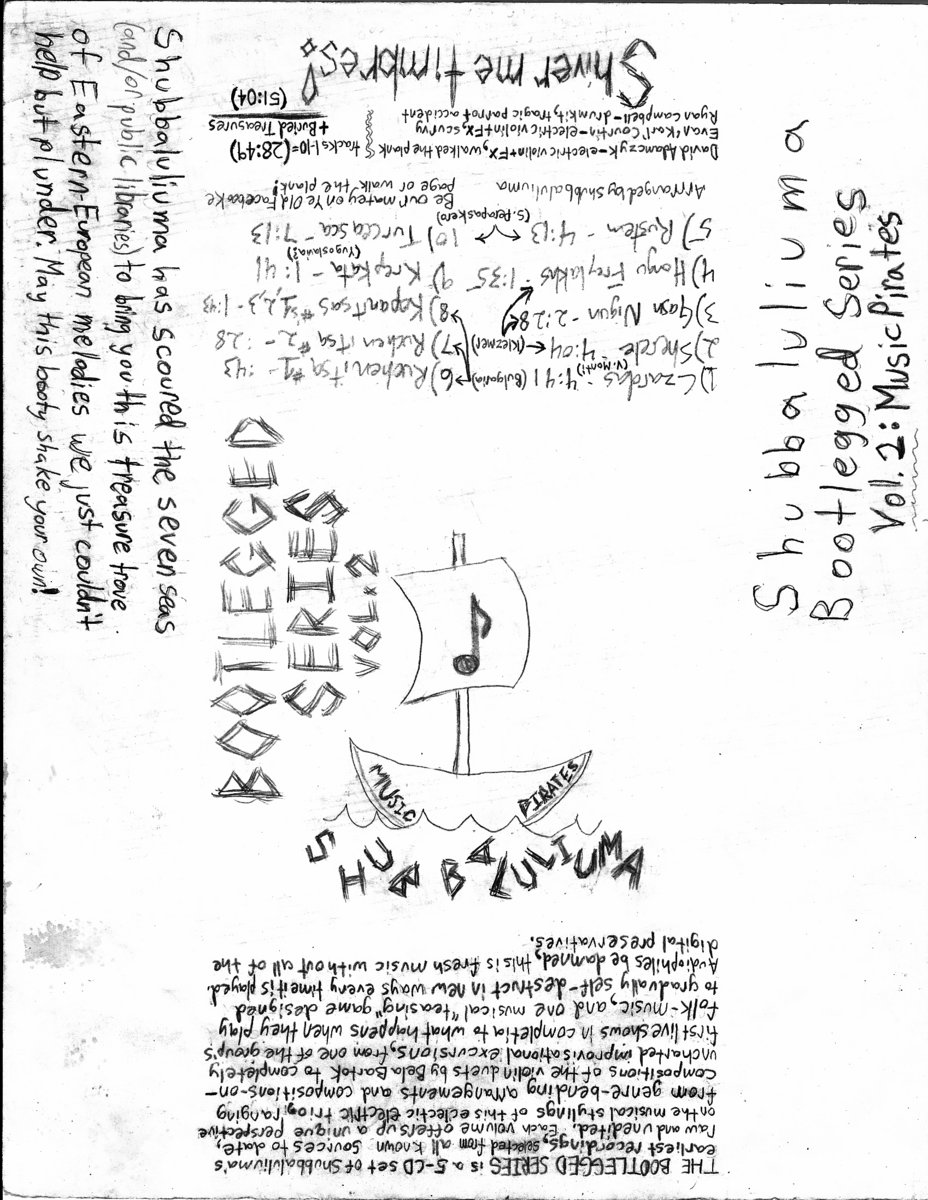 Shubbaluliuma has scoured the seven seas
(and/or public libraries) to bring you this treasure trove
of Eastern-European melodies we just couldn't
help but plunder. May this booty shake your own!
Shiver me timbres!
David Adamczyk-electric violin+FX, walked the plank
Evan "Karl" Courtin-electric violin+FX, scurvy
Ryan Campbell-drumkit, tragic parrot accident
tracks 1-10=(28:49)
+Buried Treasures
(51:04)
Arranged by Shubbaluliuma
Be our matey on Ye Old Facebooke
page or walk the plank!
1) Czardas - 4:41
(V. Monti)
2) Sherele - 4:04
(Klezmer)
3) Gasn Nigun - 2:28
4) Hongu Freylakhs - 1:35
5) Rustem - 4:13
(Bulgaria)
6) Ruchenitsa #1 - :43
7) Ruchenitsa #2 - :28
8) Kopanitsas #1,2,3 - 1:43
9) Krepkata - 1:41
(Yugoslavia?)
10) Turceasca - 7:13
Shubbaluliuma
Bootlegged Series
Vol. 2: Music Pirates
BOOTLEGGED
SERIES
VOL. 2
MUSIC
PIRATES
SHUBBALULIUMA
THE BOOTLEGGED SERIES is a 5-CD set of Shubbaluliuma's
earliest recordings, selected from all known sources to date,
raw and unedited. Each volume offers up a unique perspective
on the musical stylings of this eclectic electric trio, ranging
from genre-bending arrangements and compositions-on-
compositions of the violin duets by Bela Bartok to completely
uncharted improvisational excursions, from one of the group's
first live shows in completia to what happens when they play
folk-music, and one musical "teasing" game designed
to gradually self-destruct in new ways every time it is played.
Audiophiles be damned, this is fresh music without all of the
digital preservatives.